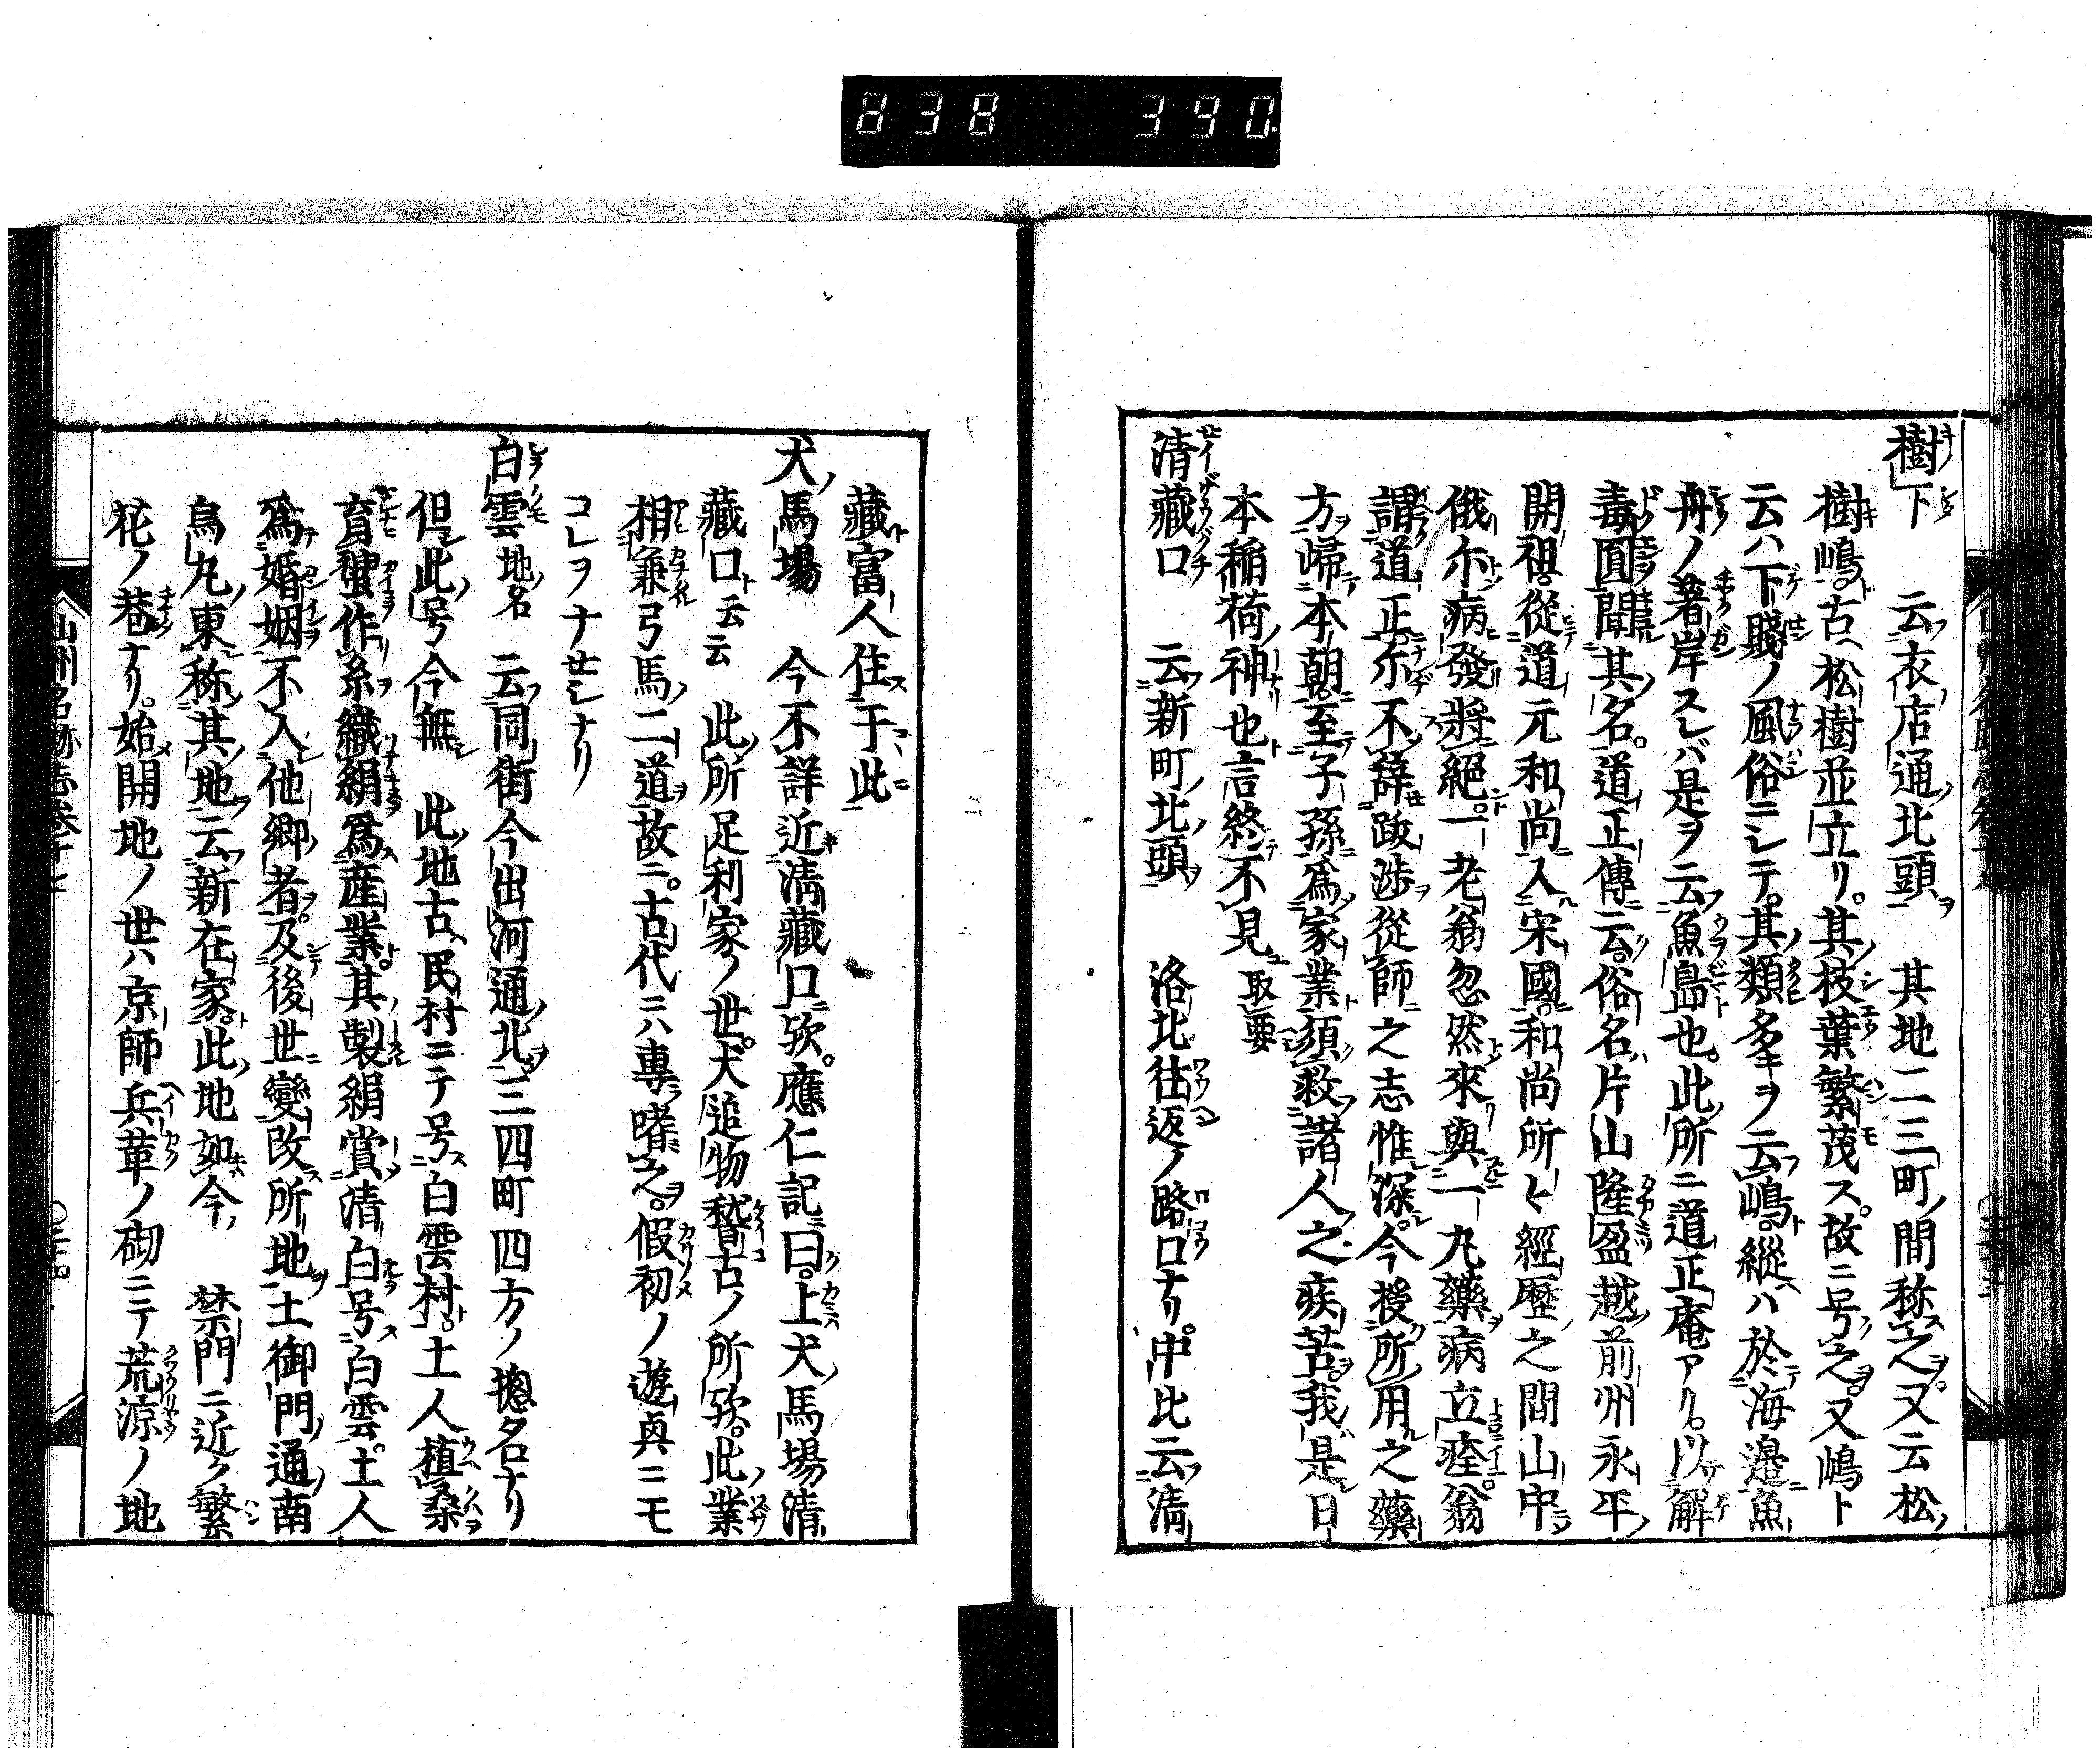 838 390
樹下 云衣店通北頭 其地二三町間称之又云松
樹嶋古ヘ松樹並立リ其枝葉繁茂ス故ニ号之又嶋ト
云ハ下賤ノ風俗ニシテ其類多キヲ云嶋縱ハ於海邉魚
舟ノ着岸スレバ是ヲ云魚島也此所ニ道正庵アリ以解
毒圓聞其名道正傳云俗名ハ片山隆盈越前州永平
開祖從道元和尚入宋國和尚所々經歴之間山中
俄尓病發將絕一老翁忽然來與一丸藥病立痊翁
謂道正尓不辞跋渉從師之志惟深今授所用之藥
方歸本朝至子孫爲家業須救諸人之疾苦我是日
本稲荷神也言終不見取要
清藏口 云新町北頭 洛北往返ノ路口ナリ中比云清
藏富人住于此
犬馬場 今不詳近清藏口歟應仁記曰上犬馬場清
藏口云云 此所足利家ノ世犬追物稽古ノ所歟此業
相兼弓馬二道故ニ古代ニハ專嗜之假初ノ遊興ニモ
コレヲナセシナリ
白雲地名 云同街今出河通北三四町四方ノ摠名ナリ
但此号今無 此地古ヘ民村ニテ号白雲村土人植桒
育蠶作糸織絹爲産業其製絹賞清白号白雲土人
爲婚姻不入他郷者及後世變改所地土御門通南
烏丸東称其地云新在家此地如今 禁門ニ近ク繁
花ノ巷ナリ始開地ノ世ハ京師兵革ノ砌ニテ荒涼ノ地
山州名跡志巻十七